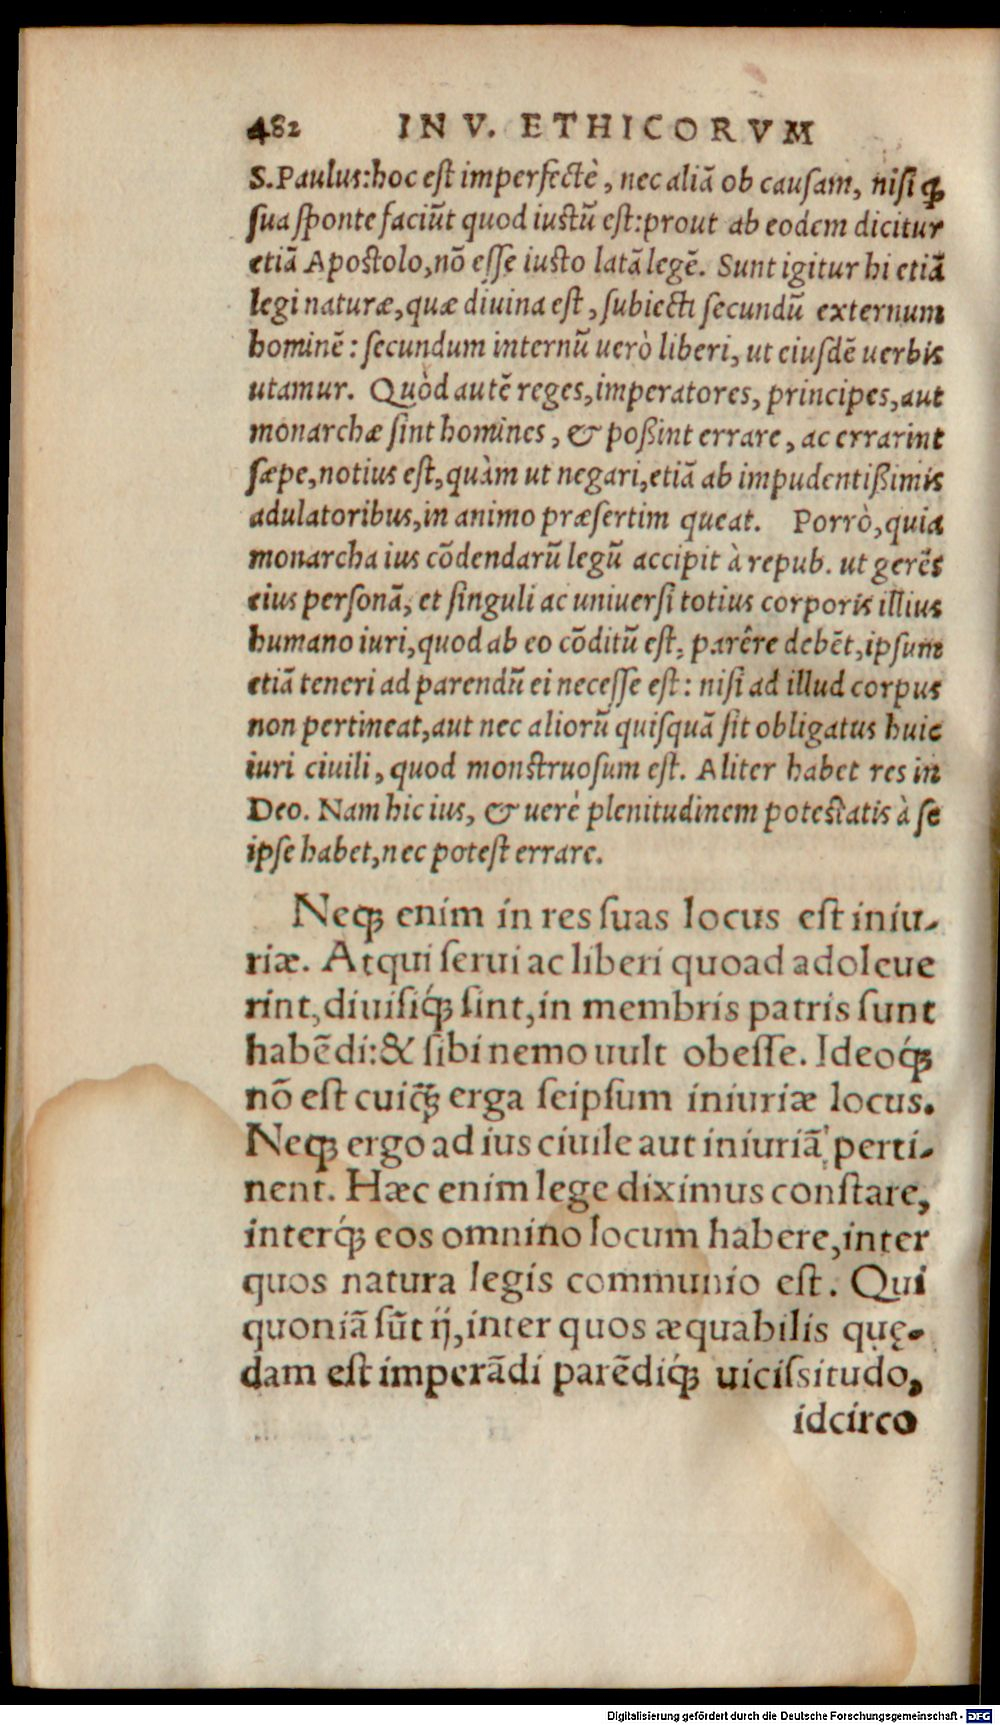 482 IN V. ETHICORVM
S. Paulus: hoc est imperfectè, nec aliā ob causam, nisi ꝙ
sua sponte faciūt quod iustū est: prout ab eodem dicitur
etiā Apostolo, nō esse iusto latā legē. Sunt igitur hi etiā
legi naturæ, quæ diuina est, subiecti secundū externum
hominē: secundum internū uerò liberi, ut eiusdē uerbis
utamur. Quòd autē reges, imperatores, principes, aut
monarchæ sint homines, & poßint errare, ac errarint
sæpe, notius est, quàm ut negari, etiā ab impudentißimis
adulatoribus, in animo præsertim queat. Porrò, quia
monarcha ius cōdendarū legū accipit à repub. ut gerēs
eius personā, et singuli ac uniuersi totius corporis illius
humano iuri, quod ab eo cōditū est, parêre debēt, ipsum
etiā teneri ad parendū ei necesse est: nisi ad illud corpus
non pertineat, aut nec aliorū quisquā sit obligatus huic
iuri ciuili, quod monstruosum est. Aliter habet res in
Deo. Nam hic ius, & uerè plenitudinem potestatis à se
ipse habet, nec potest errare.
Neqꝫ enim in res suas locus est iniu-
riæ. Atqui serui ac liberi quoad adoleue
rint, diuisiq́ꝫ sint, in membris patris sunt
habēdi: & sibi nemo uult obesse. Ideoq́ꝫ
nō est cuiq̄ꝫ erga seipsum iniuriæ locus.
Neqꝫ ergo ad ius ciuile aut iniuriā perti-
nent. Hæc enim lege diximus constare,
interq́ꝫ eos omnino locum habere, inter
quos natura legis communio est. Qui
quoniā sūt ij, inter quos æquabilis quę-
dam est imperādi parēdiq́ꝫ uicissitudo,
idcirco
Digitalisierung gefördert durch die Deutsche Forschungsgemeinschaft - DFG